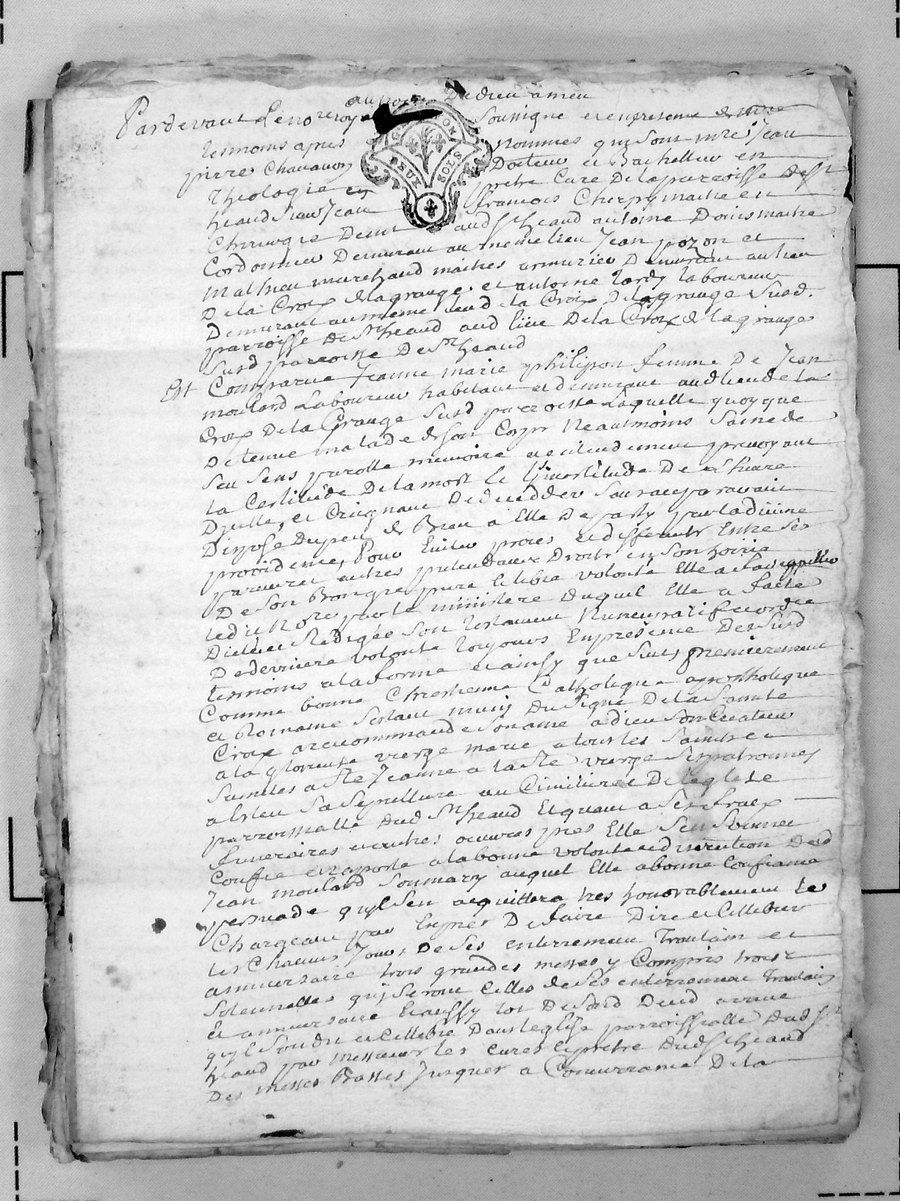 au nom de dieu amen
Pardevant Le no.re royal soussigné et en presence de
tesmoins apres nommes qui sont mre Jean
pierre Chavanon Docteur et Bachellier en
Theologie et pbtre Curé De la parroisse de St
heaud sieur Jean francois Cherpy maitre
Chirurgie Demt aud St heaud antoine maitre
Cordonnier Demeurant au mesme lieu Jean pozon et
mathieu marchand maitres armuriers Demeurant au lieu
De la Croix de la grange et antoine tardy laboureur
Demeurant au mesme lieu de la Croix De la grange susd.
parroisse De St heaud aud lieu De la Croix de la grange
susd parroisse De St heaud
Est Comparue Jeanne marie philipon femme De Jean
moulard Laboureur habitant et demeurant aud lieu de la
Croix De la Grange susd parroisse Laquelle quoyque
Detenue malade de son Corps Neantmoins saine de
ses sens parolle memoire et entendement prevoyant
la Certitude De la mort et l'incertitude De l'heure
D'icelle, et Craignant De deceder sans auparavant
Dispose du peu de Bien a Elle Departy par la divine
providence, Pour Eviter proces et differants Entre ses
parents et autres pretendants Droits en son hoirie
De son Bon gre pure et libre volonté Elle a fait appeller
ledit No.re par le ministere duquel Elle a faite
Dicter et Redigée son testament Nuncupatif et ordce
De derniere volonté toujours En presence Desusd
tesmoins a la forme et ainsy que suit, premierement
Comme bonne Chrestienne Catholique apostholique
et Romaine s'estant munis du signe De la sainte
Croix a recommandé son ame a dieu son Createur
a la glorieuse vierge marie a tous les saints et
saintes a ste Jeanne a la ste vierge ses patronnes
a Esleu sa sepulture au Cimitiere De l'eglise
parroissialle dud St heaud Et quant a ses fraix
funeraires et autres œuvres pies Elle s'en
Confie et raporte a la bonne volonté et discretion dud
Jean moulard son mary auquel Elle a bonne Confiance
persuadé qu'il s'en acquittera tres honorablement le
Chargeant par Expres De faire Dire et Cellebrer
les Chacuns Jours De ses enterrement Trantain et
anniversaire trois grandes messes y Compris trois
solennelles qui seront Celles de ses enterrement Trantain
Et anniversaire Et aussy tot De son Deced arrivé
qu'il soit dit et Cellebré Dans l'eglise parroissialle dud St
heaud par messieurs les Curés et pretre dud St heaud
Des messes Basses Jusques a Concurrance De la
GEN ON
DEUX SOLS